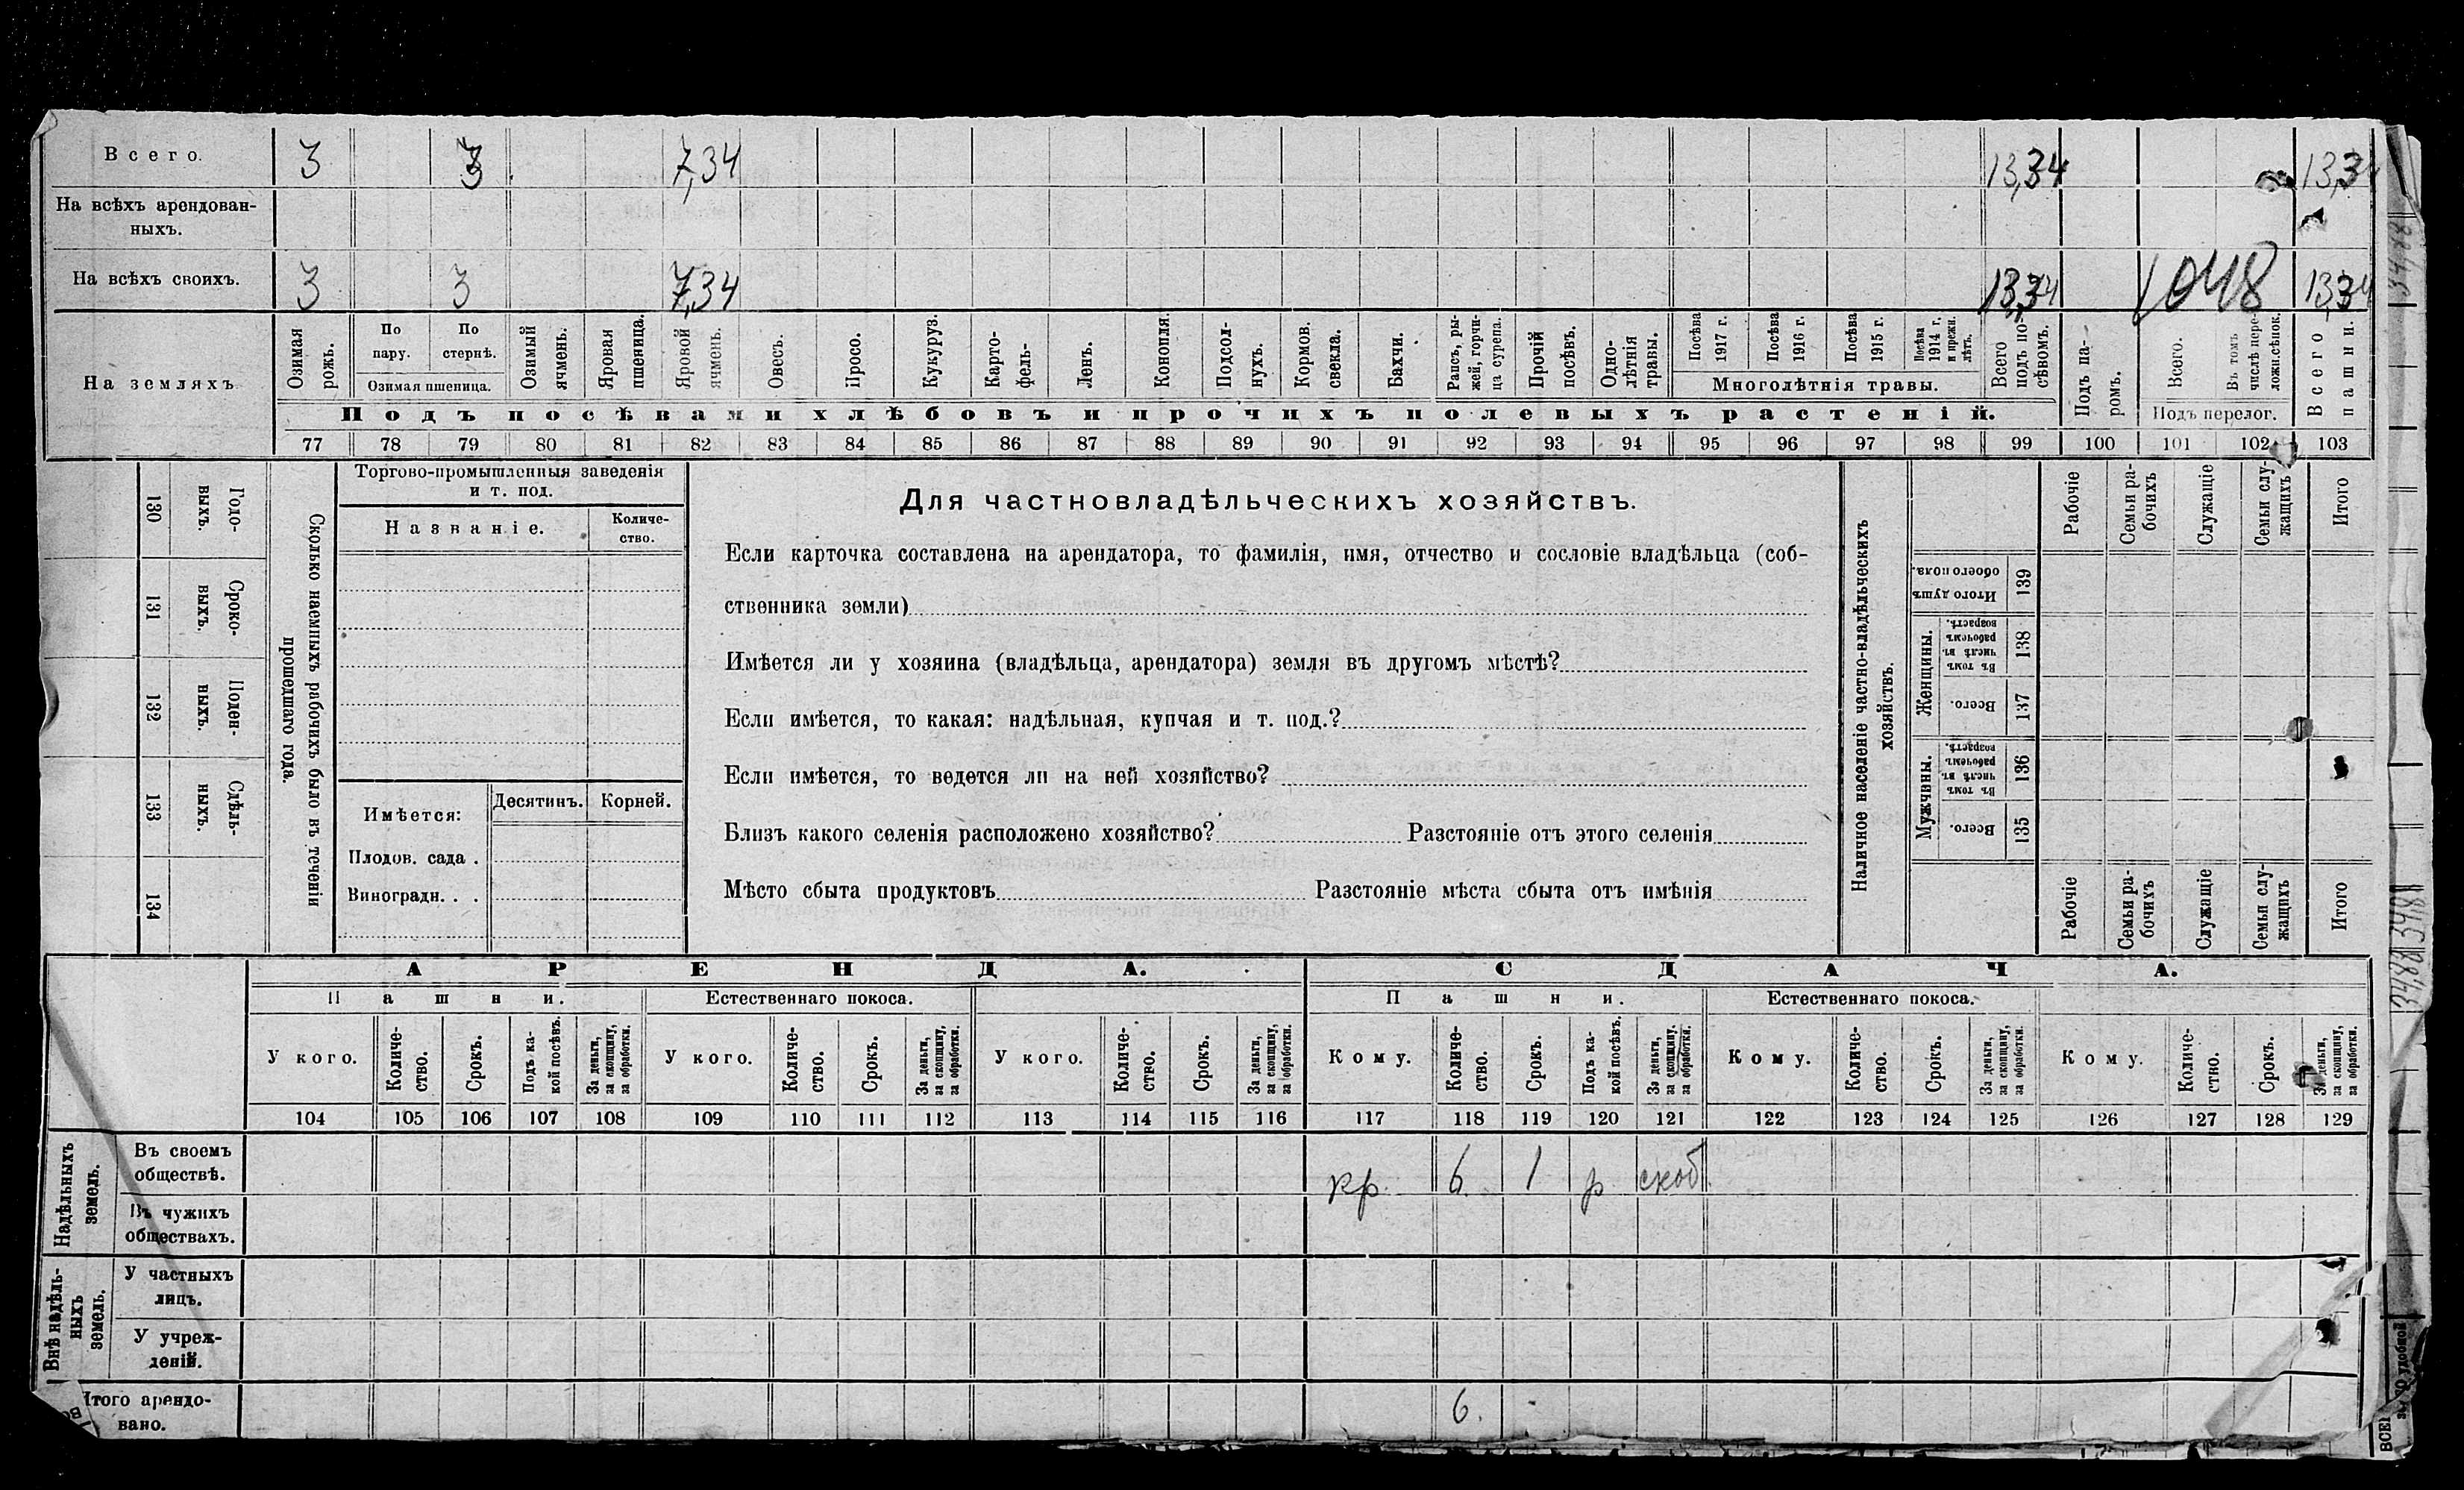 Всего. 3 3 7,34 13,34 13,34
На всѣхъ арендован-
ныхъ.
На всѣхъ своихъ. 3 3 7,34 13,34 1048 13,34
На земляхъ
Озимая рожь.
По пару.
По стернѣ.
Озимая пшеница.
Озимый ячмень.
Яровая пшеница.
Яровой ячмень.
Овесъ.
Просо.
Кукуруз.
Карто-
фель-
Ленъ.
Конопля.
Подсол-
нухъ.
Кормов.
свекла.
Бахчи.
Рапсъ, ры-
жей, горчи-
ца сурепа.
Прочій
посѣвъ.
Одно-
лѣтнія
травы.
Посѣва
1917 г.
Посѣва
1916 г.
Посѣва
1915 г.
Посѣва
1914 г.
и прежн.
лѣтъ.
Многолѣтнія травы.
Всего
подъ по-
сѣвомъ.
Подъ па-
ромъ.
Всего.
Въ томъ
числѣ пере-
ложн.сѣнок.
Подъ перелог.
Всего
пашни.
Подъ посѣвами хлѣбовъ и прочихъ полевыхъ растеній.
77 78 79 80 81 82 83 84 85 86 87 88 89 90 91 92 93 94 95 96 97 98 99 100 101 102 103
130 Годо-
выхъ.
131 Сроко-
выхъ.
132 Поден-
ныхъ.
133 Сдѣль-
ныхъ.
134
Сколько наемныхъ рабочихъ было въ теченіи
прошедшаго года.
Торгово-промышленныя заведенія
и т. под.
Названіе.
Количе-
ство.
Имѣется: Десятинъ. Корней.
Плодов. сада .
Виноградн. . .
Для частновладѣльческихъ хозяйствъ.
Если карточка составлена на арендатора, то фамилія, имя, отчество и сословіе владѣльца (соб-
ственника земли)
Имѣется ли у хозяина (владѣльца, арендатора) земля въ другомъ мѣстѣ?
Если имѣется, то какая: надѣльная, купчая и т. под.?
Если имѣется, то ведется ли на ней хозяйство?
Близъ какого селенія расположено хозяйство? Разстояніе отъ этого селенія
Мѣсто сбыта продуктовъ Разстояніе мѣста сбыта отъ имѣнія
Наличное населеніе частно-владѣльческихъ
хозяйствъ.
Рабочіе
Семьи ра-
бочихъ
Служащіе
Семьи слу-
жащихъ
Итого
Итого душъ
обоего пола.
139
Женщины.
Въ томъ
числѣ въ
рабочемъ
возрастѣ.
138
Всего.
137
Мужчины.
Въ томъ
числѣ въ
рабочемъ
возрастѣ.
136
Всего.
135
Рабочіе
Семьи ра-
бочихъ
Служащіе
Семьи слу-
жащихъ
Итого
АРЕНДА. СДАЧА.
Пашни. Естественнаго покоса. Пашни. Естественнаго покоса.
У кого.
Количе-
ство.
Срокъ.
Подъ ка-
кой посѣвъ.
За деньги,
за скопщину,
за обработки.
У кого.
Количе-
ство.
Срокъ.
За деньги,
за скопщину,
за обработки.
У кого.
Количе-
ство.
Срокъ.
За деньги,
за скопщину,
за обработки.
Кому.
Количе-
ство.
Срокъ.
Подъ ка-
кой посѣвъ.
За деньги,
за скопщину,
за обработки.
Кому.
Количе-
ство.
Срокъ.
За деньги,
за скопщину,
за обработки.
Кому.
Количе-
ство.
Срокъ.
За деньги,
за скопщину,
за обработки.
104 105 106 107 108 109 110 111 112 113 114 115 116 117 118 119 120 121 122 123 124 125 126 127 128 129
Надѣльныхъ
земель.
Въ своемъ
обществѣ.
кр. 6. 1 р
Въ чужихъ
обществахъ.
Внѣ надѣль-
ныхъ
земель.
У частныхъ
лицъ.
У учреж-
деній.
Итого арендо-
вано. 6.